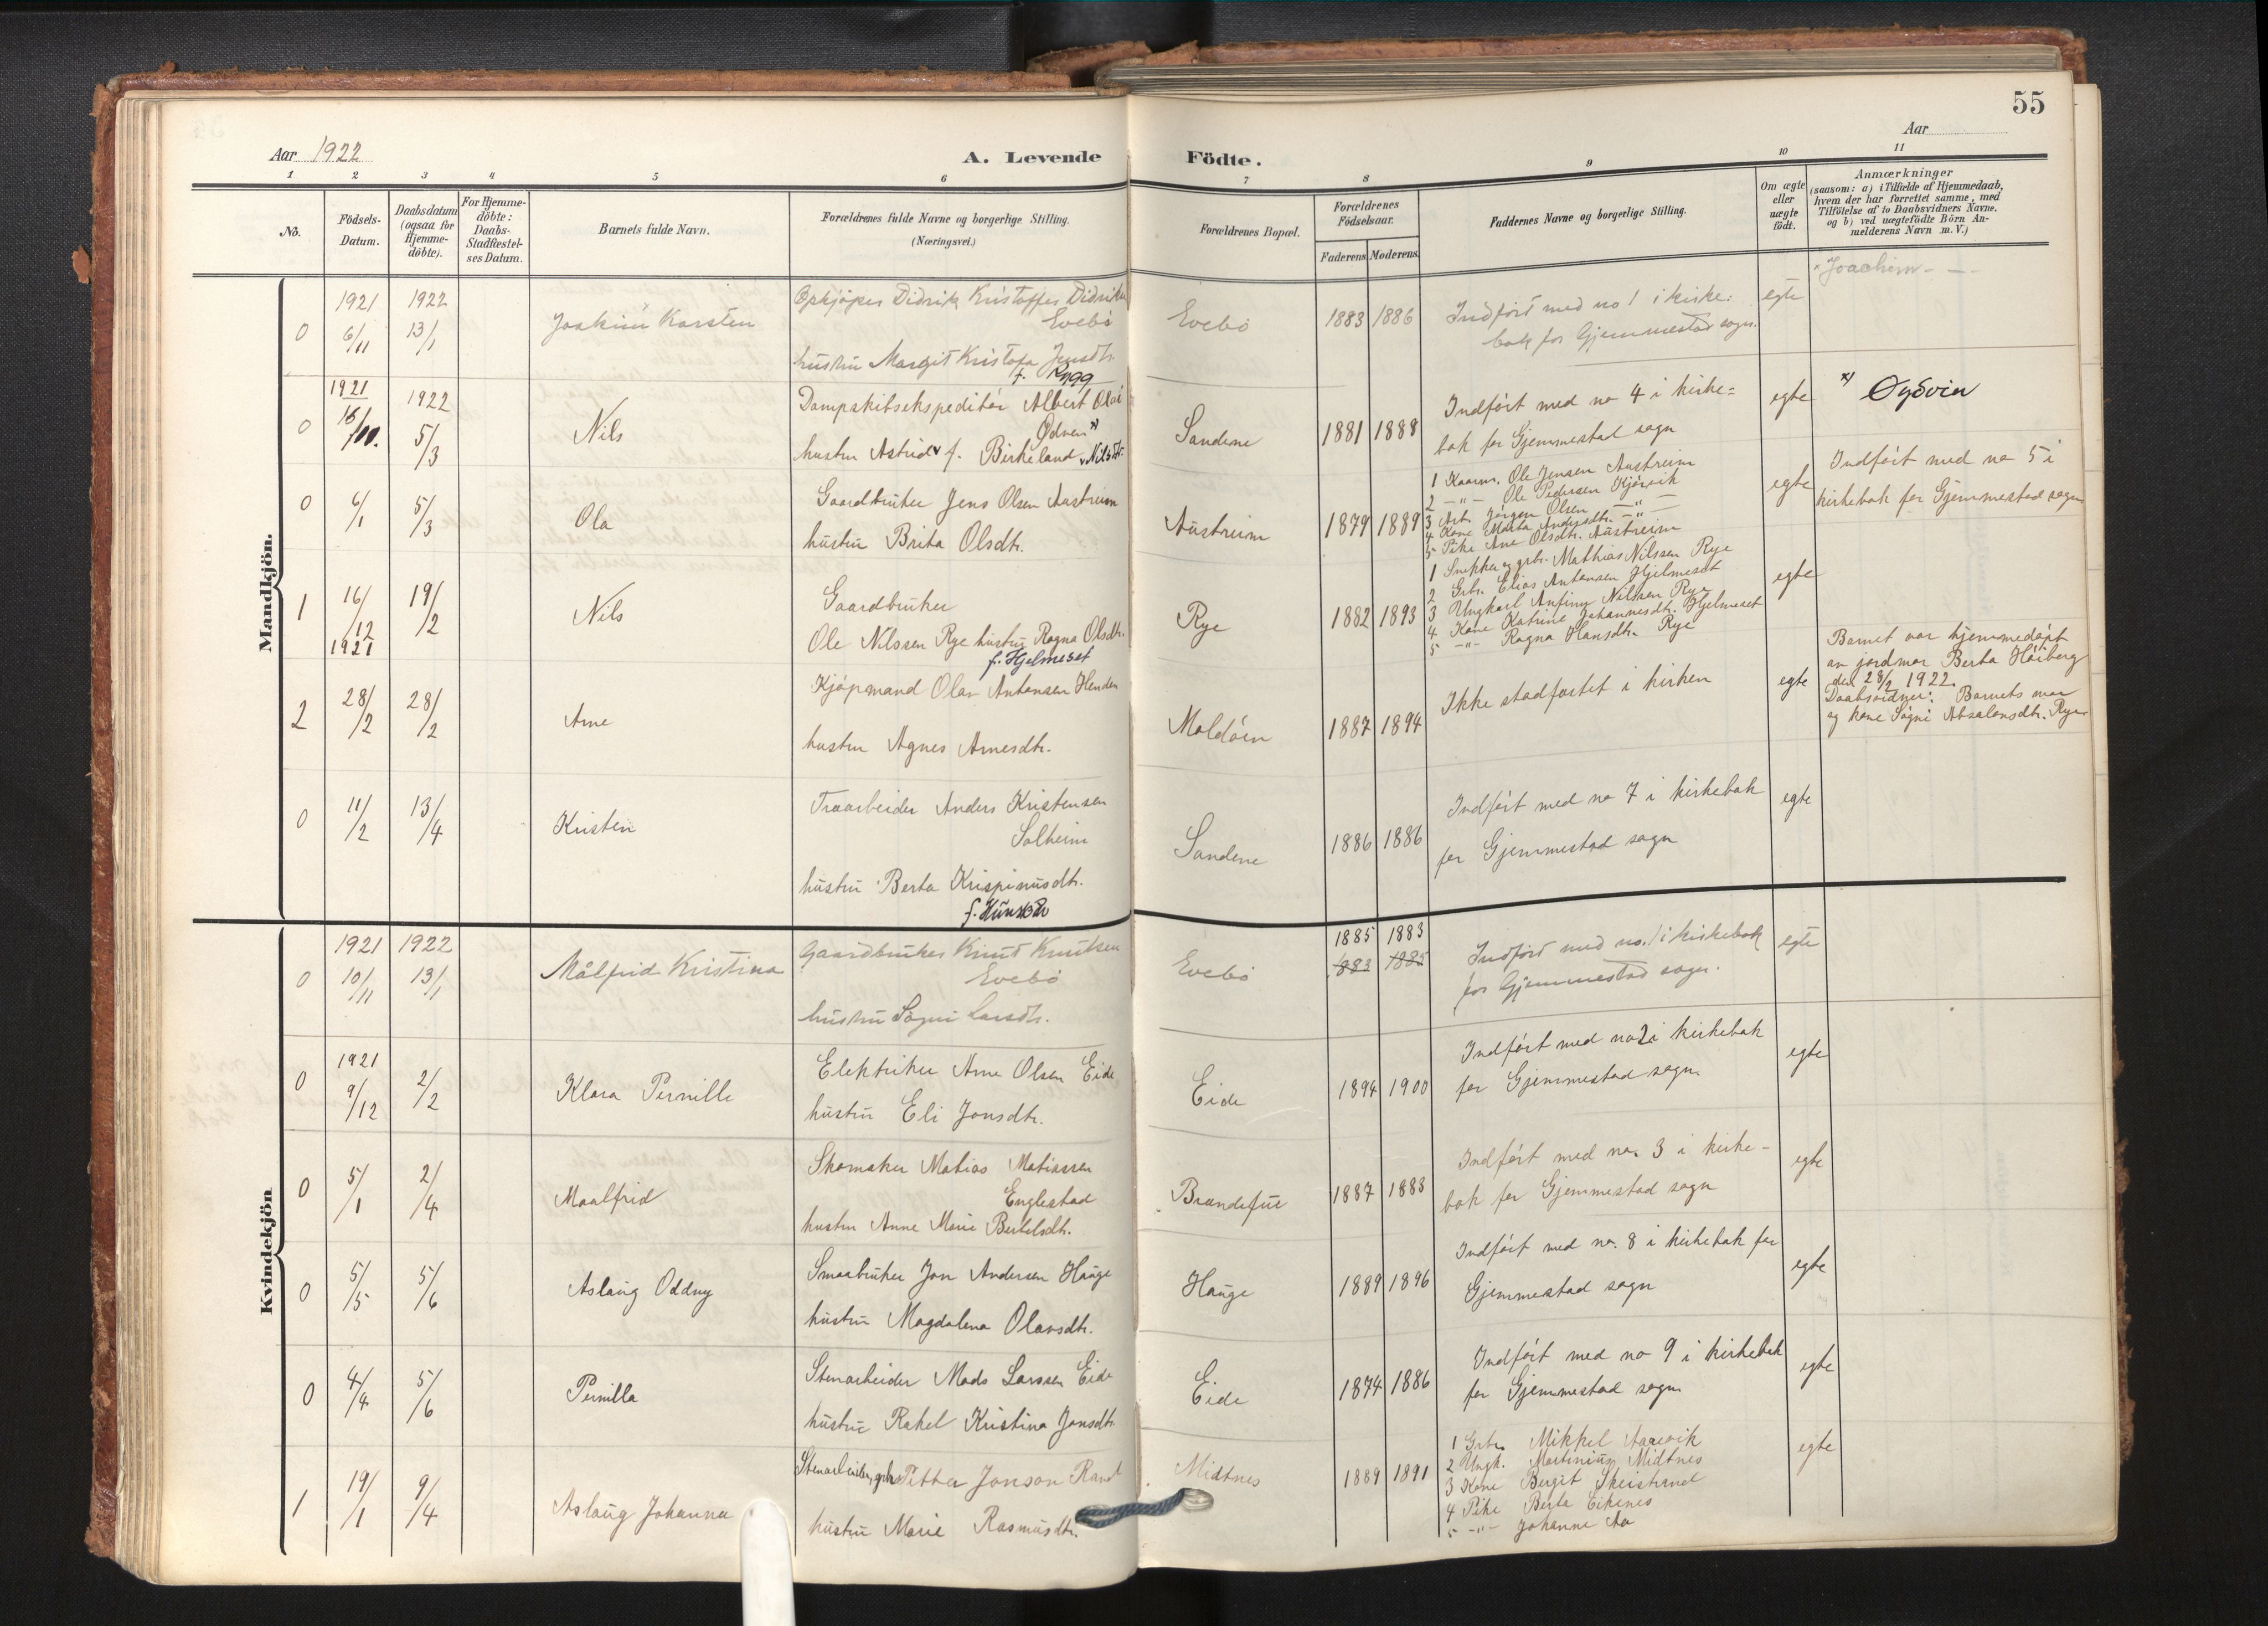 55
Aar 1922
A. Levende Födte.
Aar
1 2 3 4 5 6 7 8 9 10 11
No.
Födsels-
Datum.
Daabsdatum
(ogsaa for
Hjemme-
döbte).
For Hjemme-
döbte:
Daabs-
Stadfæstel-
ses Datum.
Barnets fulde Navn.
Forældrenes fulde Navne og borgerlige Stilling.
(Næringsvei.)
Forældrenes Bopæl.
Forældrenes
Födselsaar.
Faderens Moderens
Faddernes Navne og borgerlige Stilling.
Om ægte
eller
uægte
födt.
Anmærkninger
(saasom: a) i Tilfælde af Hjemmedaab,
hvem der har forrettet samme, med
Tilföielse af to Daabsvidners Navne.
og b) ved uægtefödte Börn An-
melderens Navn m. V.)
Mandkjön.
0
1921
6/11
1922
13/1
Joakim Karsten
Opkjøper Didrik Kristoffer Didriks
Evebö
hustru Margit Kristofa Jensdtr.
f. Rygg
Evebö
1883 1886
Indfört med no 1 i kirke:
bok for Gjemmestad sogn.
egte
Joachim - - -
0
1921
16/10.
1922
5/3
Nils
Dampskibsekspeditör Albert Olai
Ødven x)
hustru Astrid f. Birkeland Nilsdt.
Sandene
1881 1888
Indfört med no 4 i kirke=
bok for Gjemmestad sogn
egte
x) Øydvin
0
6/1
5/3
Ola
Gaardbruker Jens Olsen Austreim
hustru Brita Olsdtr.
Austreim
1879 1889
1 Kaarm. Ole Jensen Austreim
2 -"- Ole Pedersen Hjörvik
3 Arb. Jörgen Olsen -"-
4 Kone Marta Andersdtr. -"-
5 Pike Ane Olsdtr. Austreim
egte
Indfört med no 5 i
kirkebok for Gjemmestad sogn
1
16/12
1921
19/2
Nils
Gaardbruker
Ole Nilssen Rye hustru Ragna Olsdtr.
f. Hjelmeset
Rye
1882 1893
1 Snekker og grbr. Mathias Nilssen Rye
2 Grbr. Elias Antonsen Hjelmeset
3 Ungkarl Anfinn Nilssen Rye
4 Kone Katrine Johannesdtr. Hjelmeset
5 -"- Ragna Hansdtr. Rye
egte
2
28/2
28/2
Arne
Kjöpmand Olav Antonsen Henden
hustru Agnes Arnesdtr.
Moldöen
1887 1894
Ikke stadfæstet i kirken
egte
Barnet var hjemmedöpt
av jordmor Berta Höiberg
den 28/2 1922.
Daabsvidner: Barnets mor
og kone Sögni Absalonsdtr. Rye
0
11/2
13/4
Kristen
Træarbeider Anders Kristensen
Solheim
hustru Berta Krispinusdtr.
Sandene
1886 1886
Indfört med no 7 i kirkebok
for Gjemmestad sogn
egte
Kvindekjön
0
1921
10/11
1922
13/1
Målfrid Kristina
Gaardbruker Knut Knutsen
Evebö
hustru Sögni Larsdtr.
Evebö
1885 1883
1883 1885
Indfört med no. 1 i kirkebok
for Gjemmestad sogn.
egte
0
1921
9/12
2/2
Klara Pernille
Elektriker Arne Olsen Eide
hustru Eli Jonsdtr.
Eide
1894 1900
Indfört med no 2 i kirkebok
for Gjemmestad sogn.
egte
0
5/1
2/4
Maalfrid
Skomaker Matias Matiassen
Englestad
hustru Anne Marie Bertelsdtr.
Brandefur
1887 1883
Indfört med no. 3 i kirke-
bok for Gjemmestad sogn
egte
0
5/5
5/6
Aslaug Oddny
Smaabruker Jon Andersen Hauge
hustru Magdalena Olavsdtr.
Hauge
1889 1896
Indfört med no. 8 i kirkebok for
Gjemmestad sogn
egte
0
4/4
5/6
Pernilla
Stenarbeider Mads Larssen Eide
hustru Rakel Kristina Jonsdtr.
Eide
1874 1886
Indfört med no 9 i kirkebok
for Gjemmestad sogn
egte
1
19/1
9/4
Aslaug Johanna
Stenarbeider, grbr. Petter Jonson Rand
hustru Marie Rasmusdtr.
Midtnes
1889 1891
1 Grbr. Mikkel Aarevik
2 Ungk. Martinius Midtnes
3 Kone Bergit Skeistrand
4 Pike Berta Eikenes
5 -"- Johanne Aa
egte